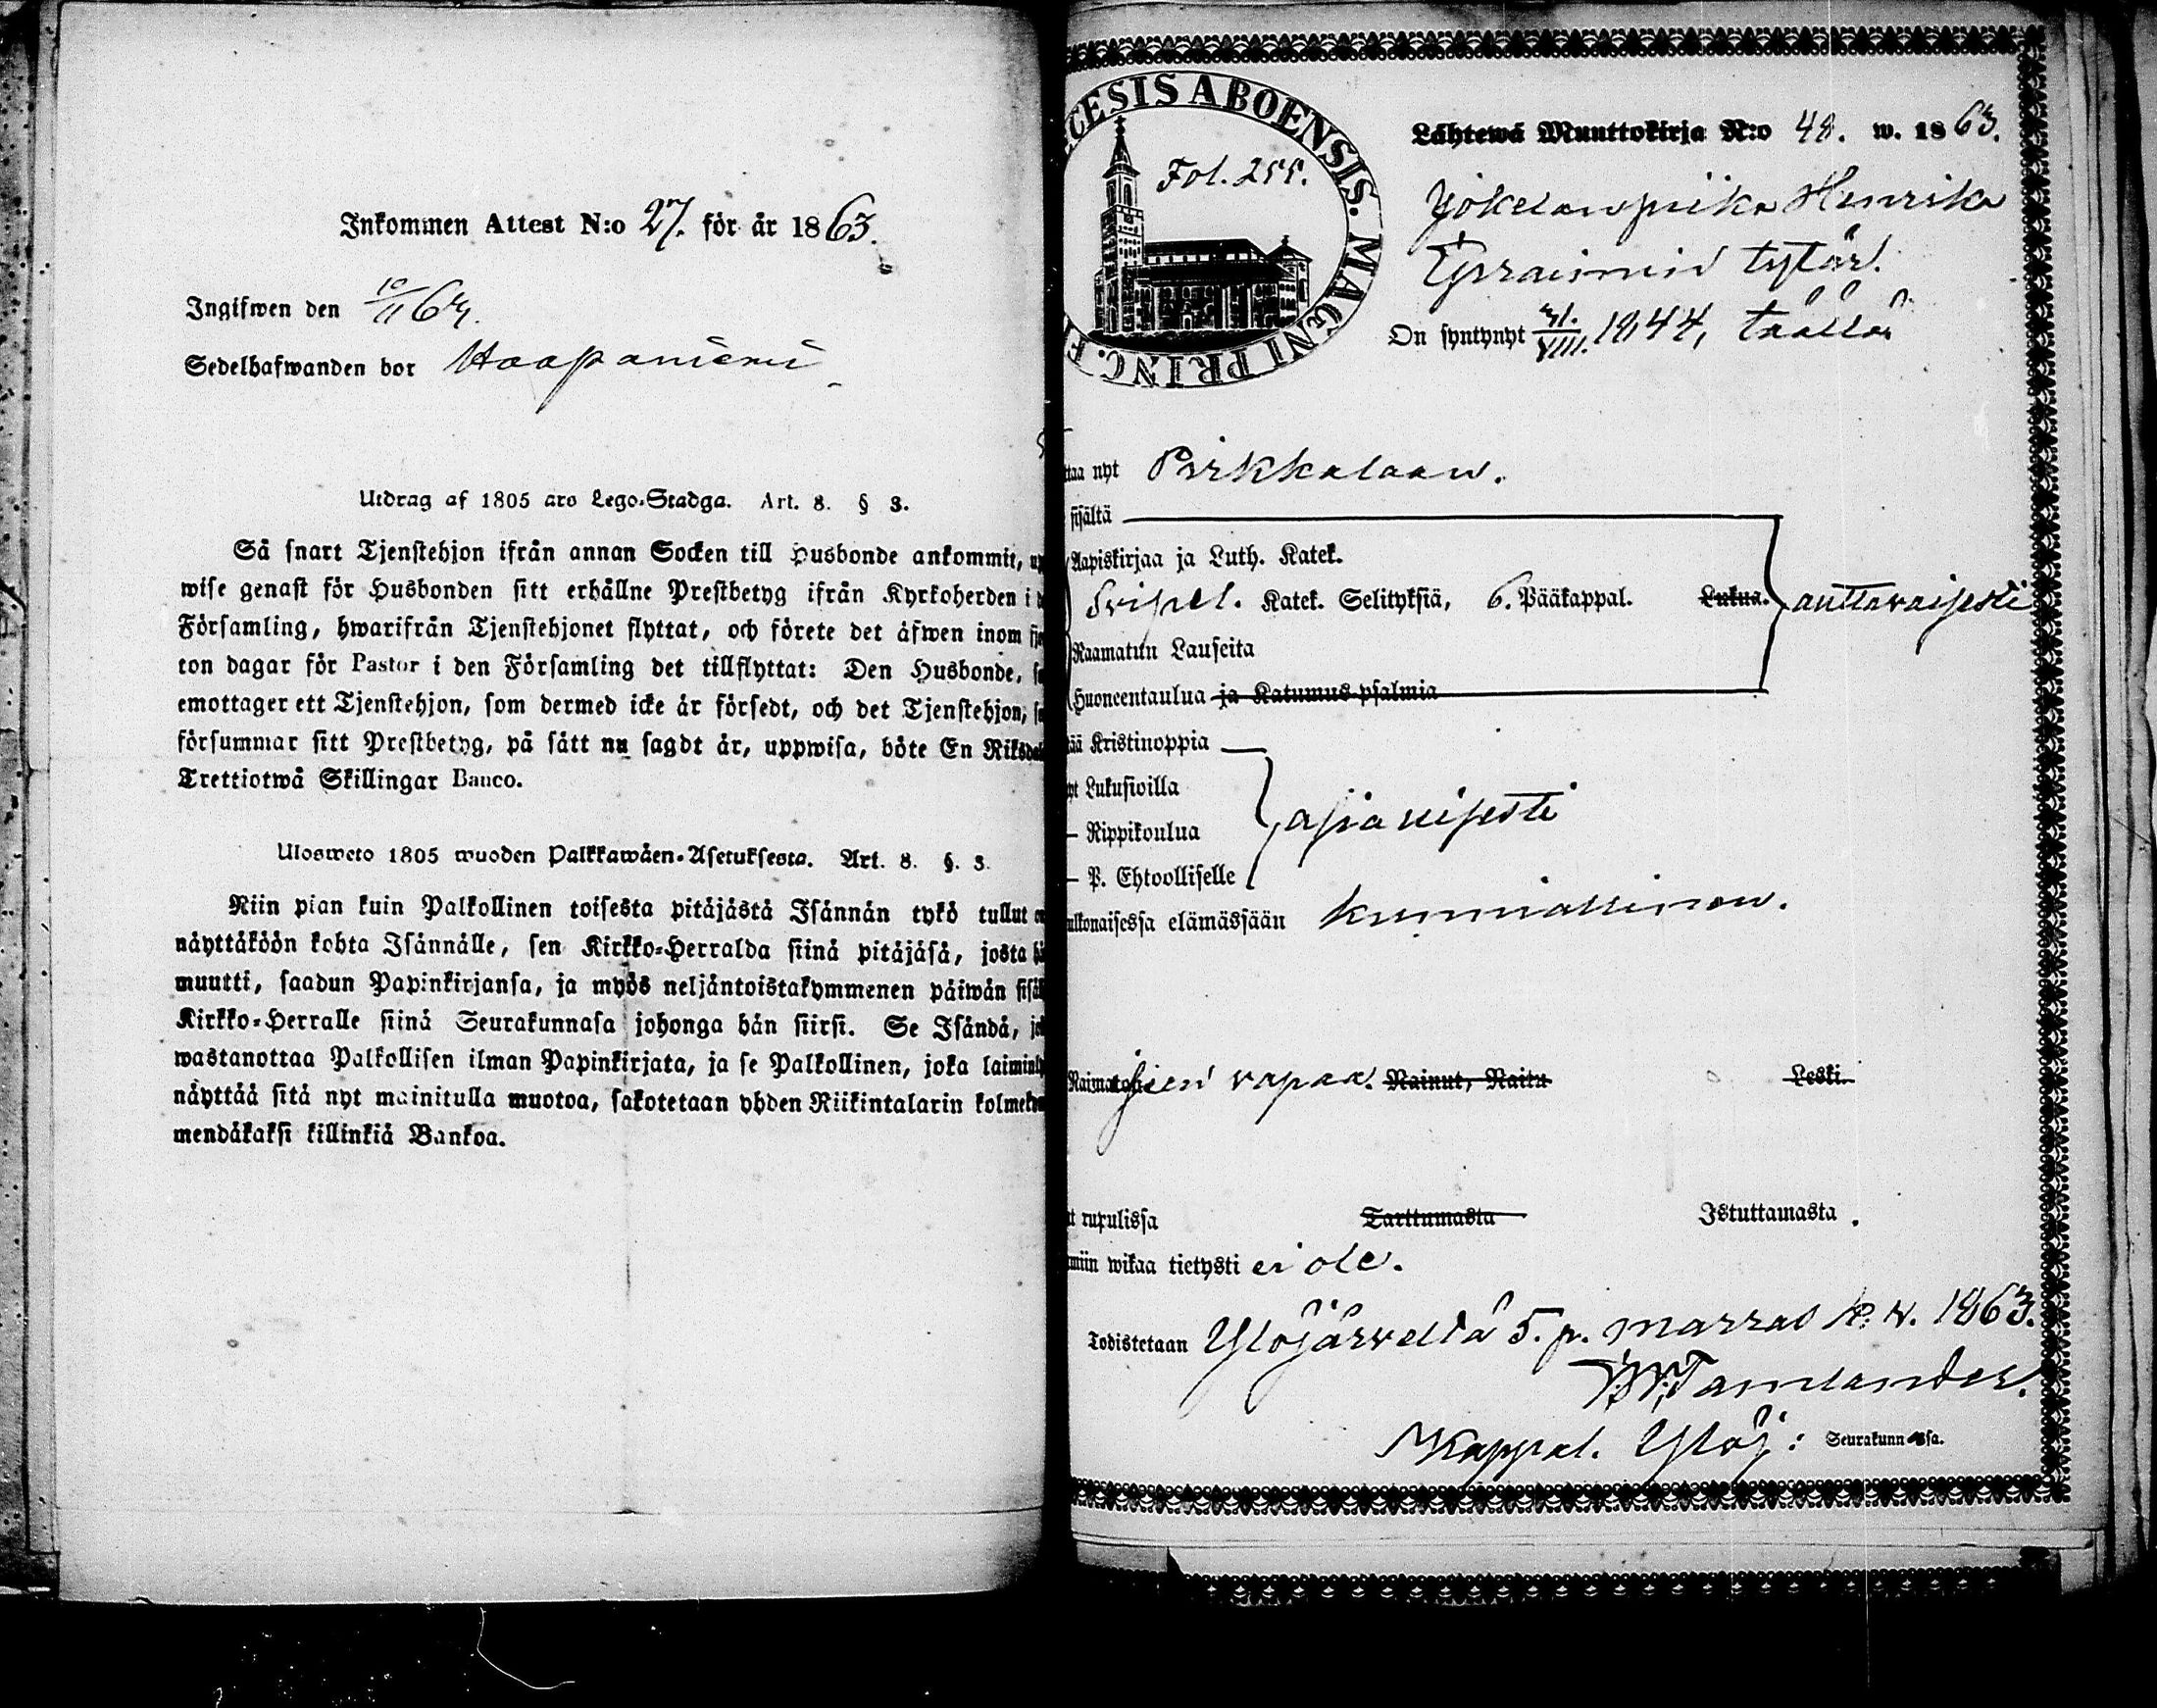 Inkommen Attest N:o 27. för år 1863.
Ingifwen den 10/11 63.
Sedelhafwanden bor Haapaniemi
Utdrag af 1805 års Lego-Stadga. Art. 8. § 3.
Så snart Tjenstehjon ifrån annan Socken till Husbonde ankommit, up
wise genast för Husbonden sitt erhållne Prestbetyg ifrån Kyrkoherden i d
Församling, hwarifrån Tjenstehjonet flyttat, och förete det äfwen inom fje
ton dagar för Pastor i den Församling det tillflyttat: Den Husbonde, s
emottager ett Tjenstehjon, som dermed icke är försedt, och det Tjenstehjon, s
försummar sitt Prestbetyg, på sätt nu sagdt är, uppwisa, böte En Riksdal
Trettiotwå Skillingar Banco.
Ulosweto 1805 wuoden Palkkawäen-Asetuksesta. Art. 8. §. 3.
Niin pian kuin Palkollinen toisesta pitäjästä Isännän tykö tullut on
näyttäköön kohta Isännälle, sen Kirkko-Herralda siinä pitäjäsä, josta hä
muutti, saadun Papinkirjansa, ja myös neljäntoistakymmenen päiwän sisäl
Kirkko-Herralle siinä Seurakunnasa johonga hän siirsi. Se Isändä, jok
wastanottaa Palkollisen ilman Papinkirjata, ja se Palkollinen, joka laiminly
näyttää sitä nyt mainitulla muotoa, sakotetaan yhden Riikintalarin kolmeky
mendäkaksi killinkiä Bankoa.
CESIS ABOENSIS. MAGNI PRINC. F
Fol. 255.
Lähtewä Muuttokirja N:o 48. w. 1863.
Jokelan piika Henrika
Efraimin tytär.
On syntynyt 31./VIII. 1844, täällä
ttaa nyt Pirkkalaan.
sisältä
Aapiskirjaa ja Luth. Katek.
Svipel. Katek. Selityksiä, 6. Pääkappal. Lukua. auttavaisesti
Raamatun Lauseita
Huoneentaulua ja Katumus-psalmia
tää Kristinoppia
yt Lukusioilla
— Rippikoulua asianisesti
— P. Ehtoolliselle
ulkonaisessa elämässään kunniallinen.
Naima vapaa. Nainut, Naitu Leski.
t rupulissa Tarttumasta Istuttamasta.
miin wikaa tietysti ei ole.
Todistetaan Ylöjärveltä 5. p. marras k. v. 1863.
Kappal. Ylöj: Seurakunnassa.